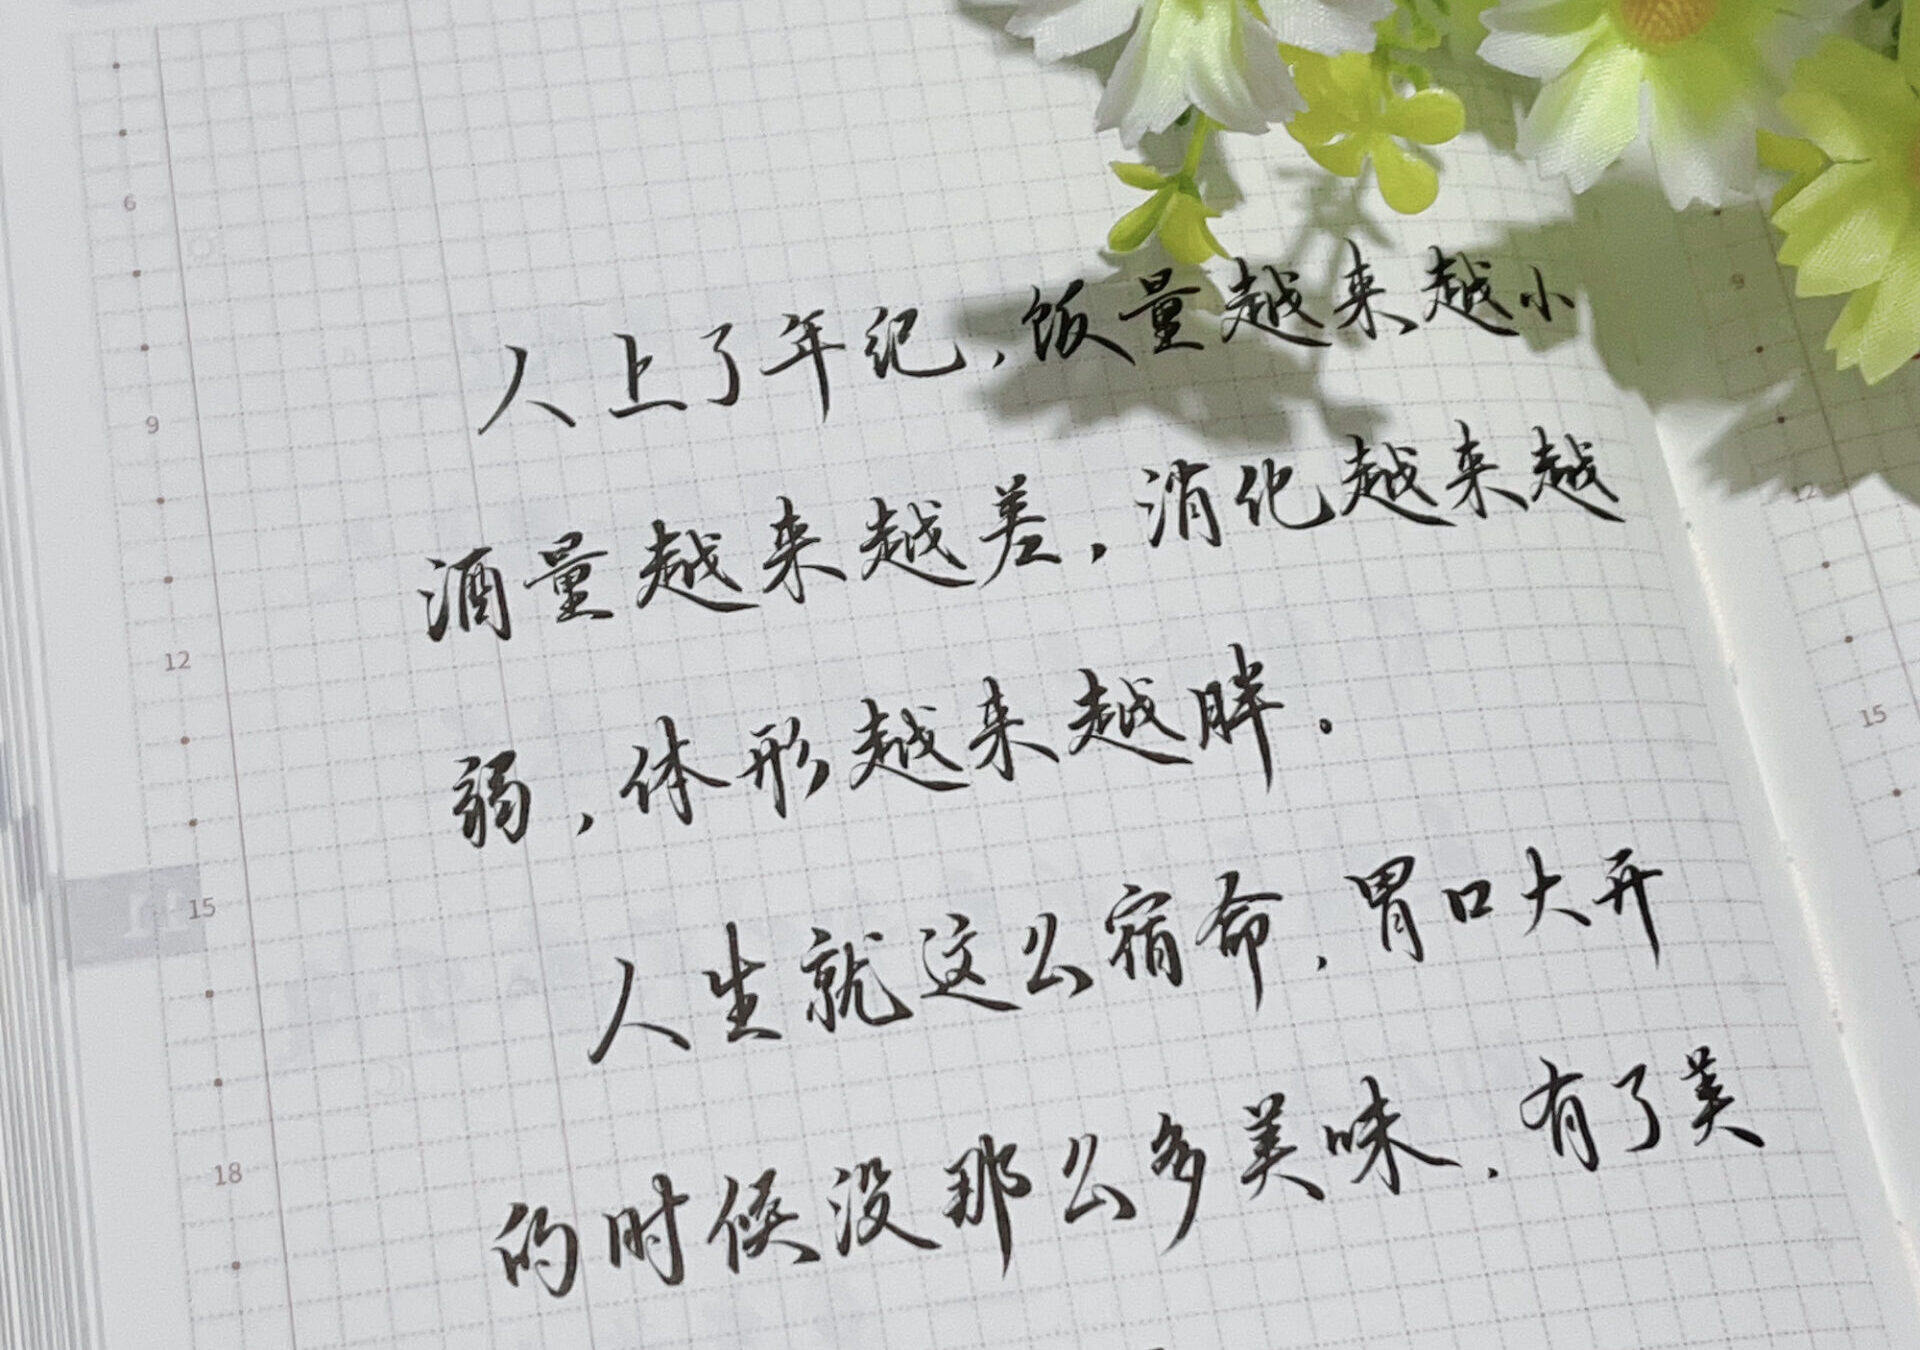 人上了年纪,饭量越来越小
酒量越来越差,消化越来越
弱,体形越来越胖。
人生就这么宿命,胃口大开
的时候没那么多美味,有了美
6
9
12
15
18
9
12
15